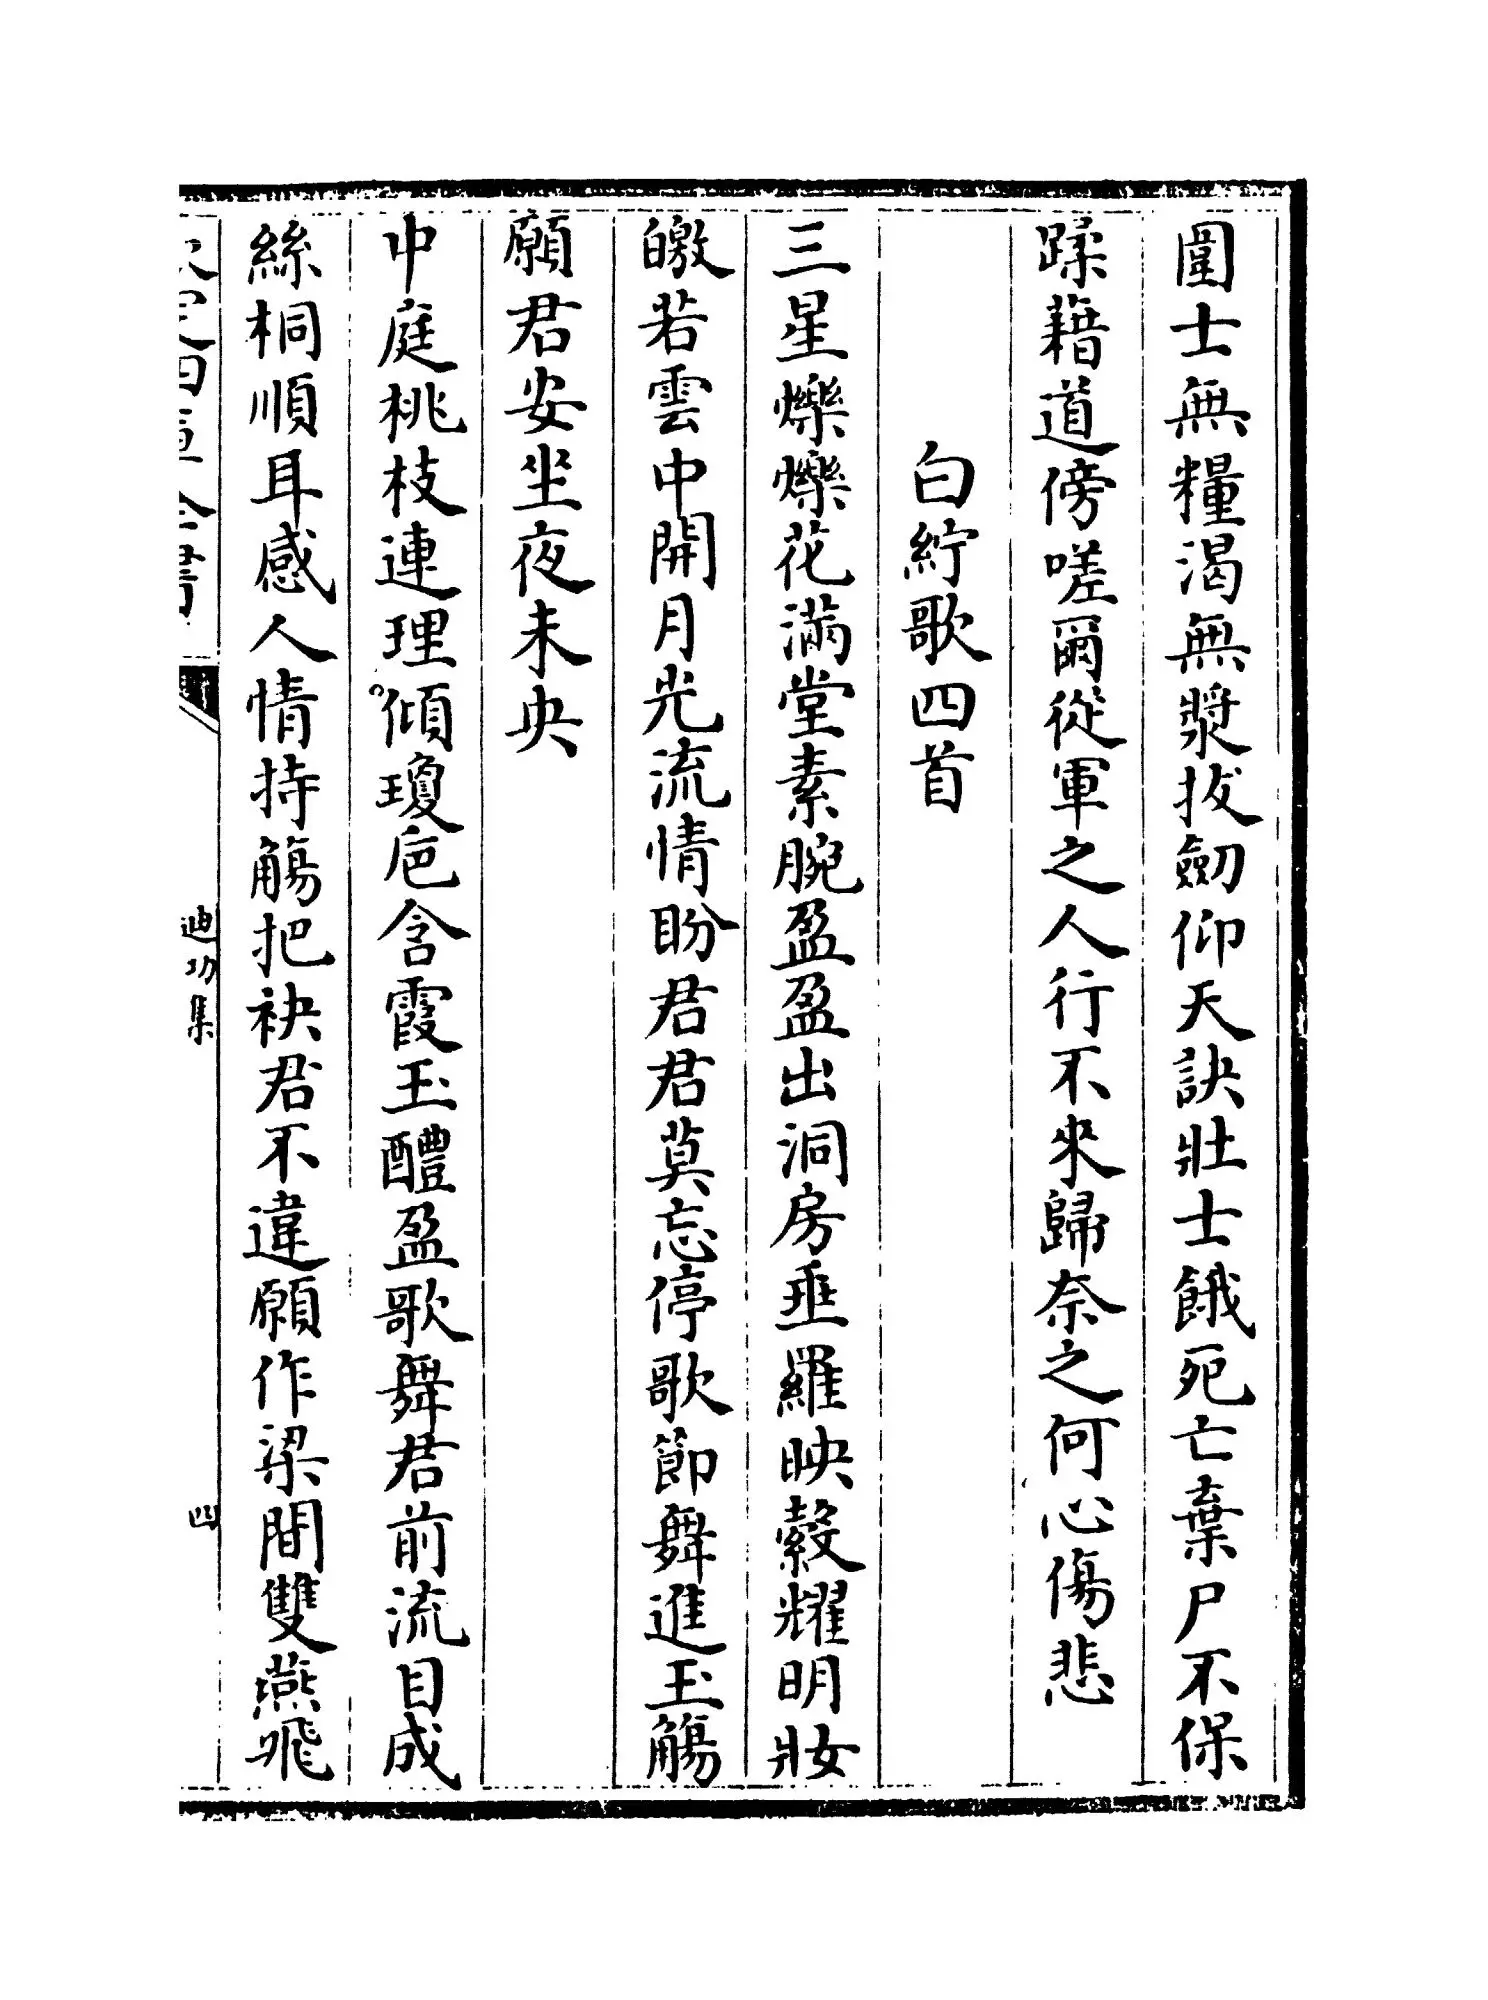 圍士無糧渴無漿拔劒仰天訣壯士餓死亡棄尸不保
蹂藉道傍嗟爾從軍之人行不來歸奈之何心傷悲
白紵歌四首
三星爍爍花滿堂素腕盈盈出洞房垂羅映縠耀明妝
皦若雲中開月光流情盼君君莫忘停歌節舞進玉觴
願君安坐夜未央
中庭桃枝連理傾瓊巵含霞玉醴盈歌舞君前流目成
絲桐順耳感人情持觴把袂君不違願作梁間雙燕飛
欽定四庫全書
迪功集
四